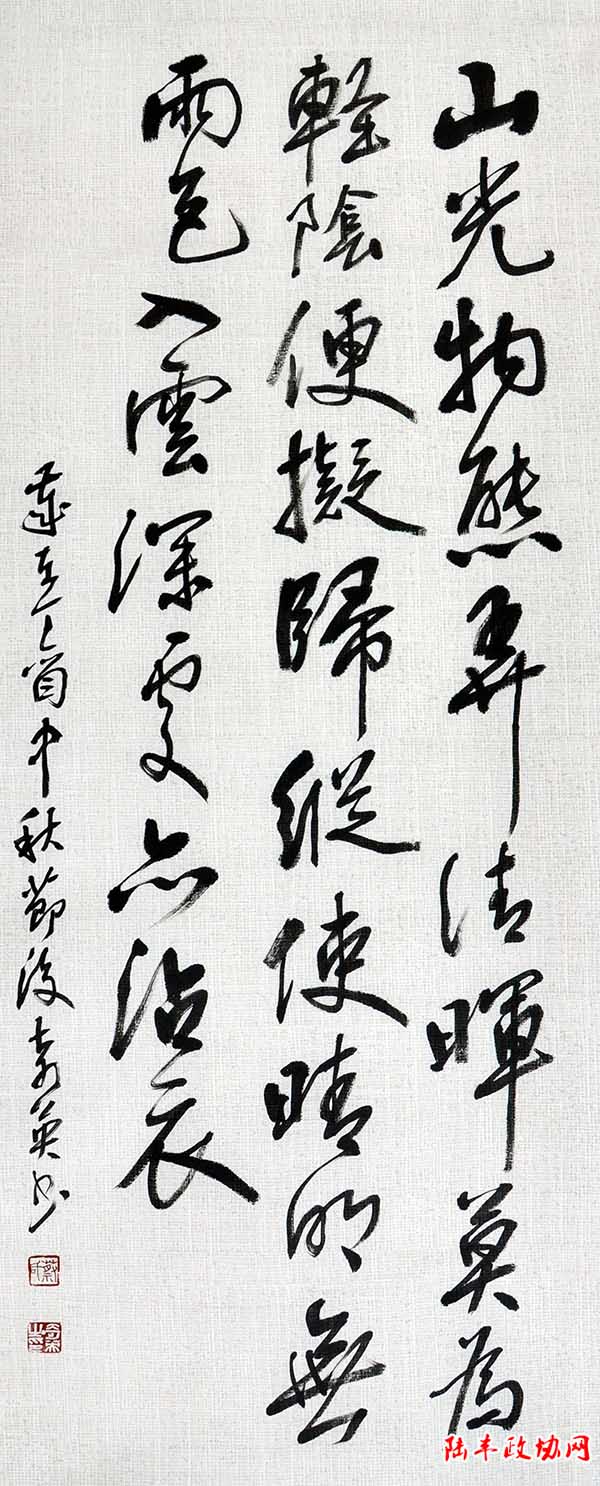 山光物態弄清暉莫為
輕陰便擬歸縱使晴明無
雨色入雲深處亦沾衣
歲在丁酉中秋節後奇英书
陆丰政协网